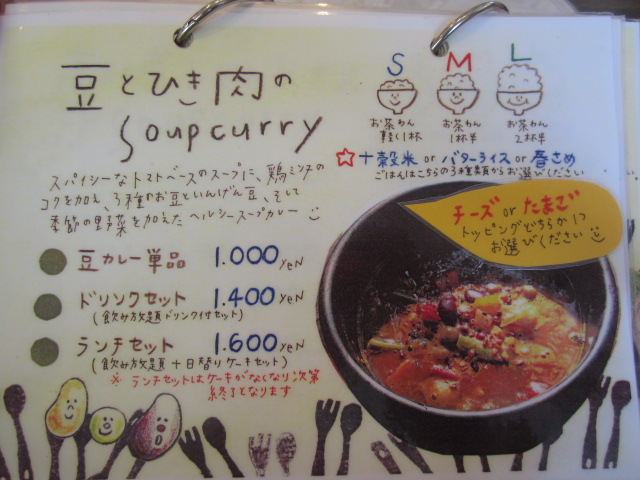 豆とひき肉の
Soupcurry
スパイシーなトマトベースのスープに、鶏ミンチの
コクを加え、3種のお豆といんげん豆、そして
季節の野菜を加えたヘルシースープカレー
豆カレー単品 1.000 yeN
ドリンクセット 1.400 yeN
(飲み放題ドリンク付セット)
ランチセット 1.600 yeN
(飲み放題+日替りケーキセット)
※ ランチセットはケーキがなくなり次第
終了となります
S M L
お茶わん 軽く1杯
お茶わん 1杯半
お茶わん 2杯半
☆十穀米 or バターライス or 春さめ
ごはんはこちらの3種類からお選びください
チーズ or たまご
トッピングどちらか1つ
お選びください